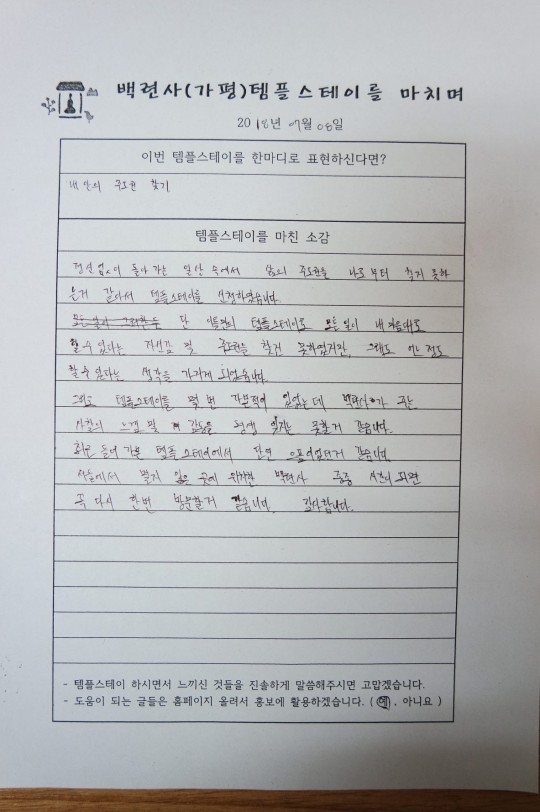 백련사(가평)템플스테이를 마치며
2018년 07월 08일
이번 템플스테이를 한마디로 표현하신다면?
내 안의 주도권 찾기
템플스테이를 마친 소감
정신없이 돌아 가는 일상 속에서 삶의 주도권을 나로 부터 찾지 못하
은거 같아서 템플스테이를 신청하였습니다.
단 이틀만의 템플스테이로 모든 일이 내 마음대로
할 수 있다는 자신감 및 주도권을 찾진 못하였지만, 그래도 어느 정도
할 수 있다는 생각을 가지게 되었습니다.
그리고 템플스테이를 몇 번 가본적이 있었는데 백련사가 주는
사찰의 느낌 및 감동을 평생 잊지는 못할거 같습니다.
최근 들어 가본 템플스테이에서 단연 으뜸이었던거 같습니다.
서울에서 멀지 않은 곳에 위치한 백련사 종종 시간이 되면
꼭 다시 한번 방문할거 같습니다. 감사합니다.
- 템플스테이 하시면서 느끼신 것들을 진솔하게 말씀해주시면 고맙겠습니다.
- 도움이 되는 글들은 홈페이지 올려서 홍보에 활용하겠습니다. ( 예 , 아니요 )